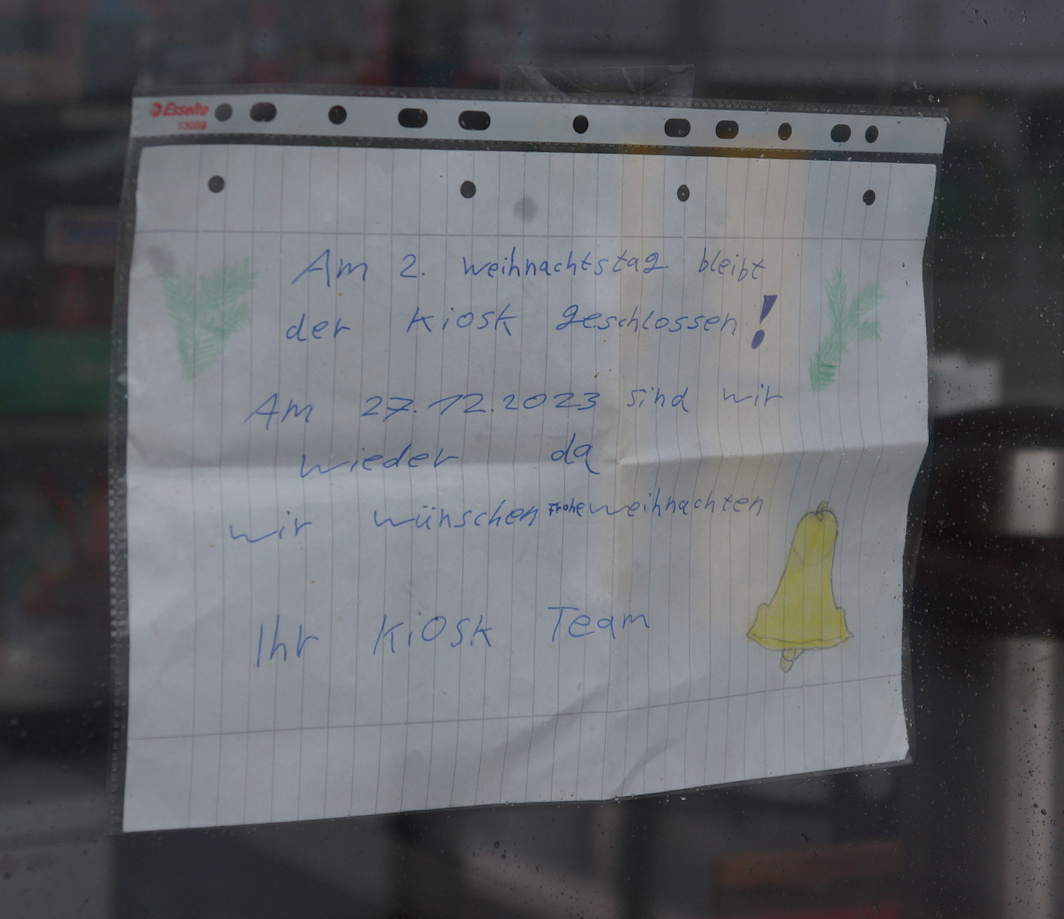 Esselte
13089
Am 2. Weihnachtstag bleibt
der Kiosk geschlossen!
Am 27.12.2023 sind wir
wieder da
wir wünschen Frohe weihnachten
Ihr Kiosk Team